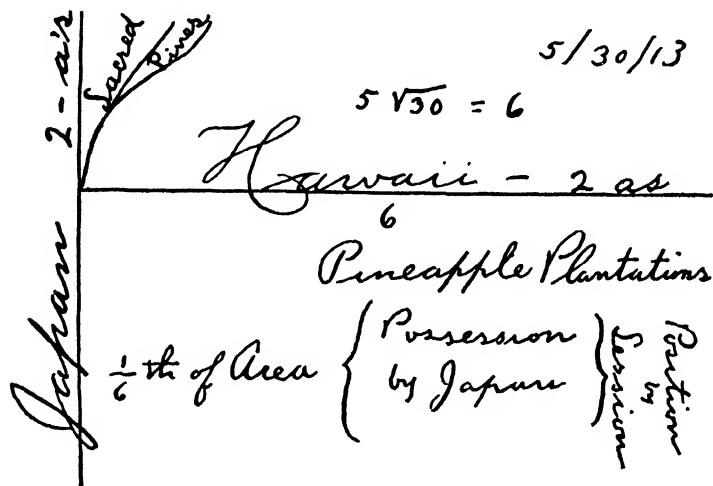 5/30/13
2 - a's
Sacred
Pines
5 √30 = 6
Hawaii - 2 as
6
Japan
Pineapple Plantations
1/6 th of Area { Possession by Japan }
Position
by
Session